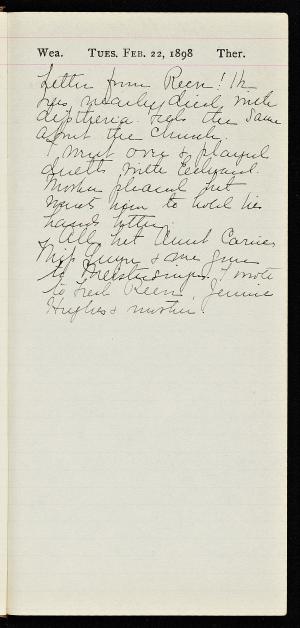 Wea. TUES. FEB. 22, 1898 Ther.
Letter from Reen! He
says, nearly died with
diphtheria. Feels the same
about the Church.
I went over & played
duetts with Edward.
Mother pleased but
wants him to hold his
hands better.
All but Aunt Carrie,
Miss & me gone
to Meistersinger. I wrote
to Fred Reen, Jennie
Hughes & mother.